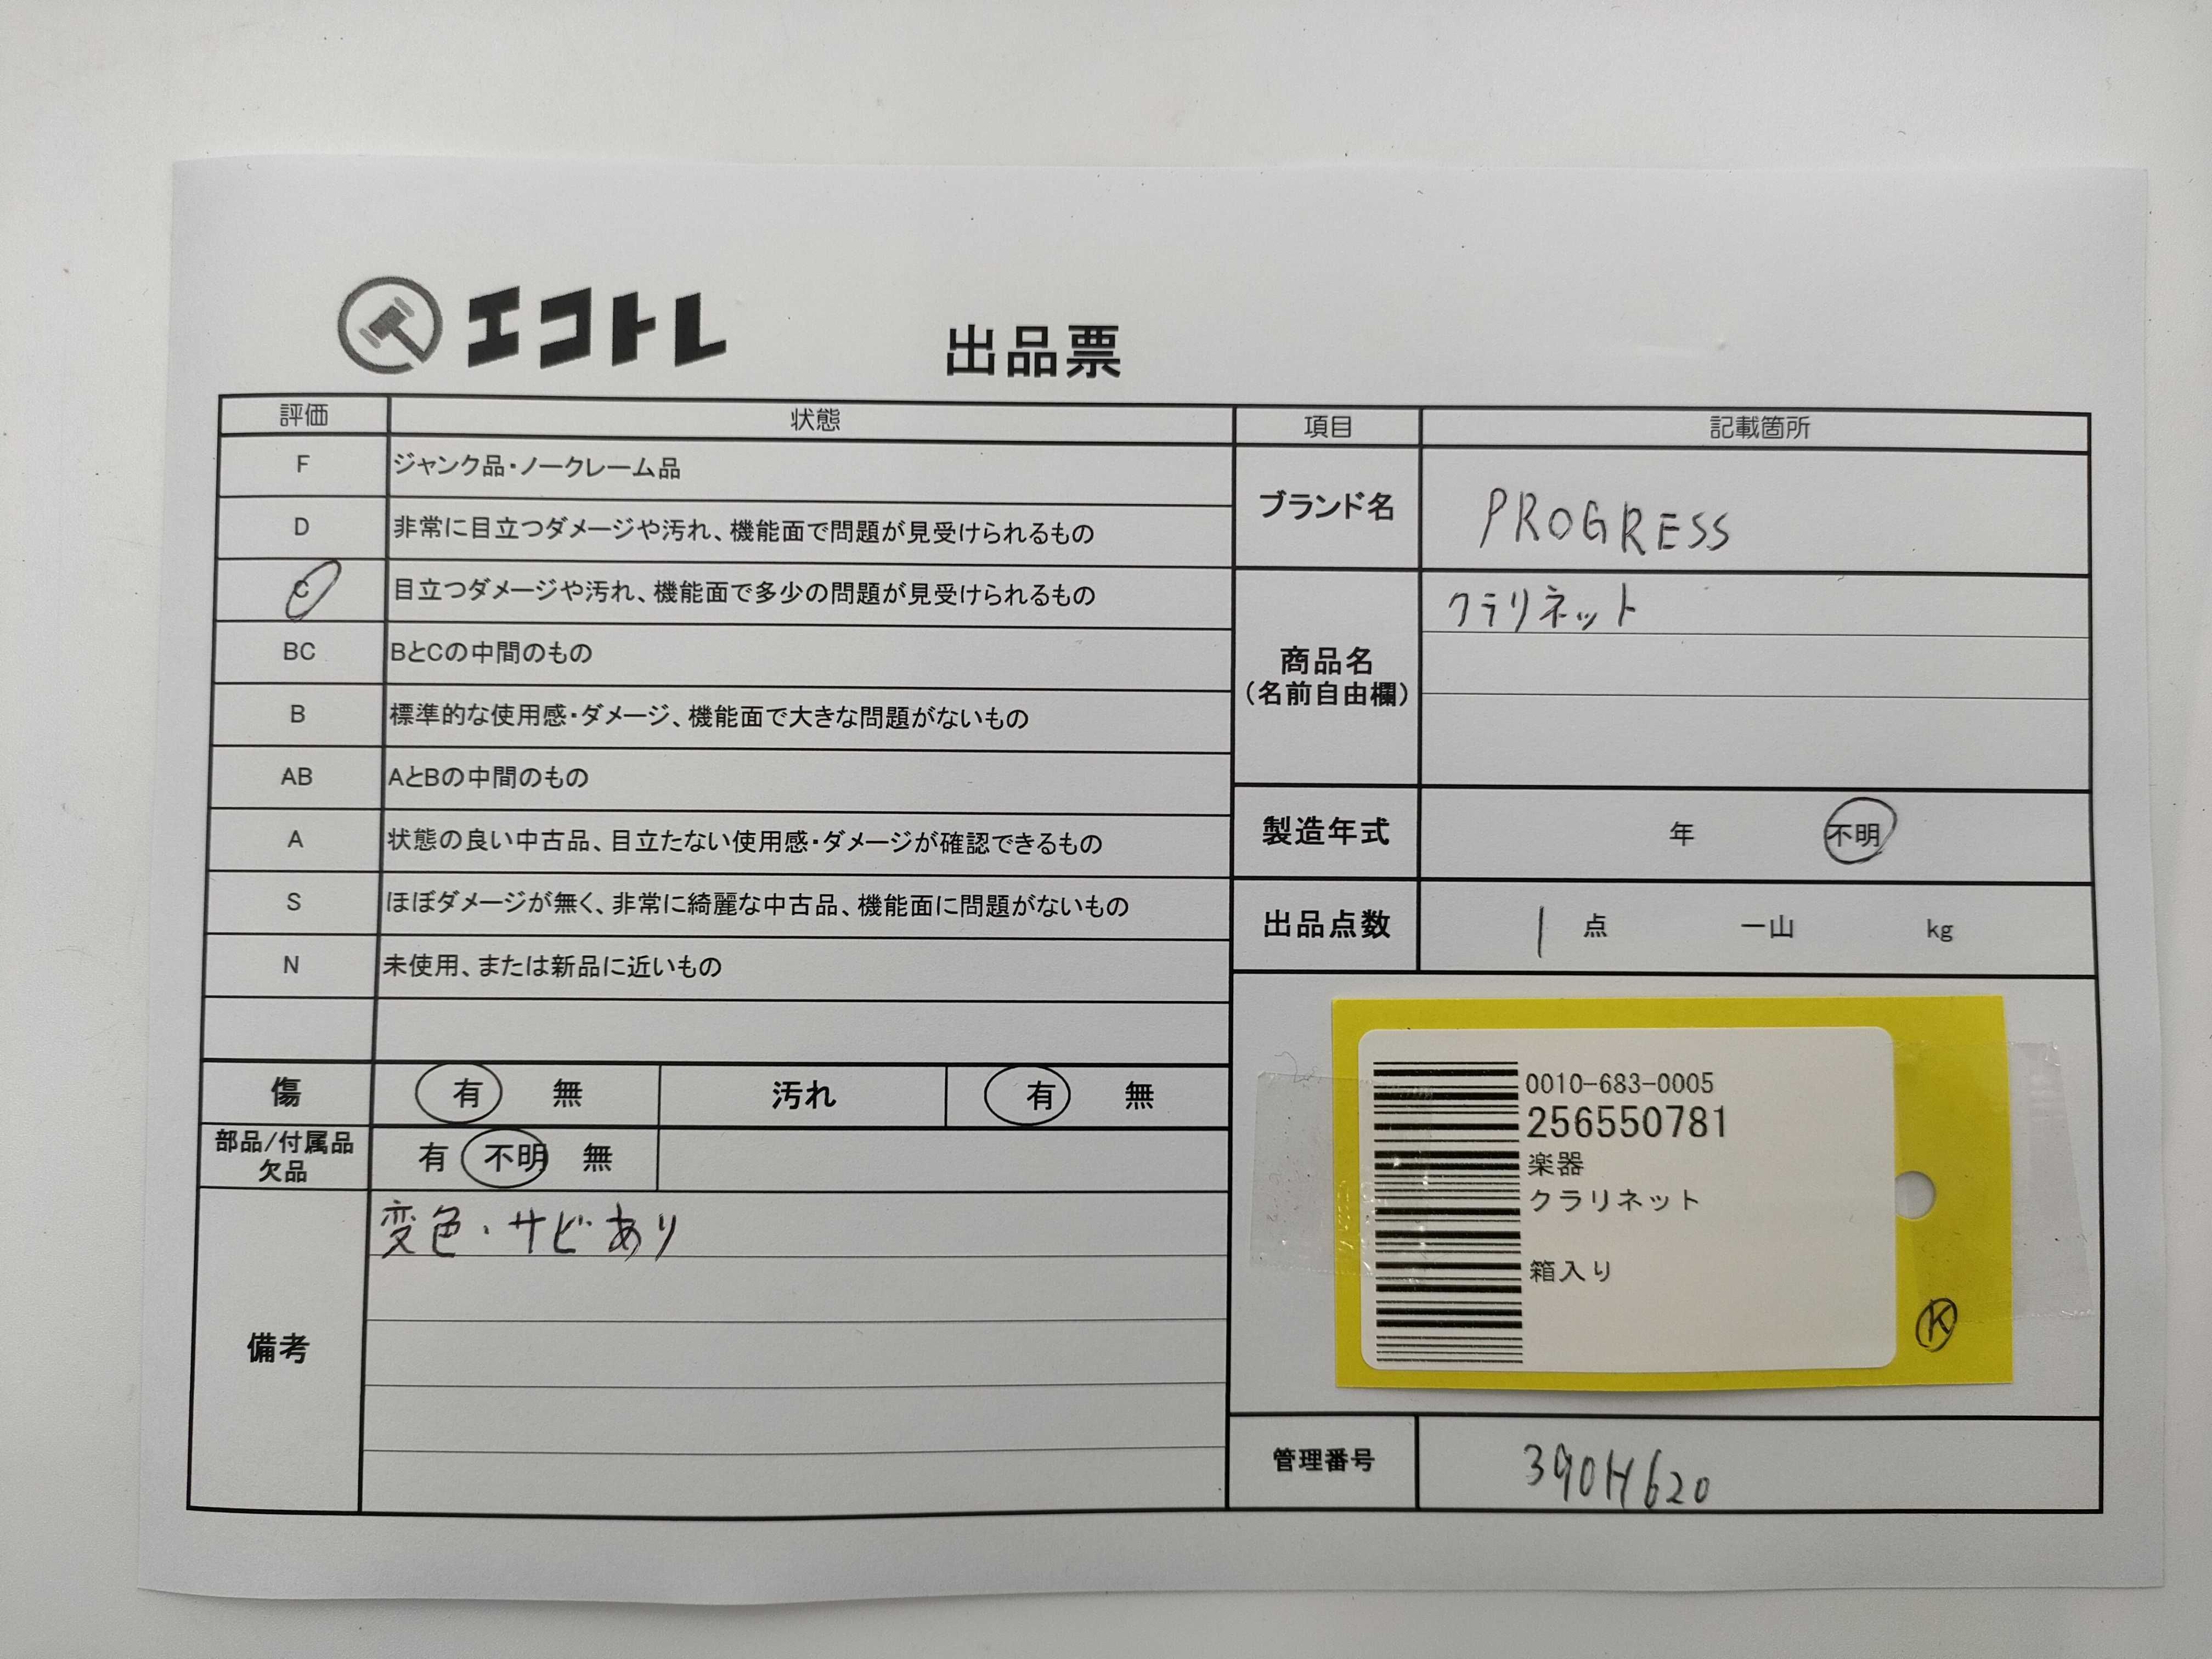 エコトレ
出品票
評価 状態
F ジャンク品・ノークレーム品
D 非常に目立つダメージや汚れ、機能面で問題が見受けられるもの
C 目立つダメージや汚れ、機能面で多少の問題が見受けられるもの
BC BとCの中間のもの
B 標準的な使用感・ダメージ、機能面で大きな問題がないもの
AB AとBの中間のもの
A 状態の良い中古品、目立たない使用感・ダメージが確認できるもの
S ほぼダメージが無く、非常に綺麗な中古品、機能面に問題がないもの
N 未使用、または新品に近いもの
傷 有 無 汚れ 有 無
部品/付属品
欠品
有 不明 無
備考
変色・サビあり
項目 記載箇所
ブランド名 PROGRESS
商品名
(名前自由欄)
クラリネット
製造年式 年 不明
出品点数 1 点 一山 kg
0010-683-0005
256550781
楽器
クラリネット
箱入り
K
管理番号 390H620